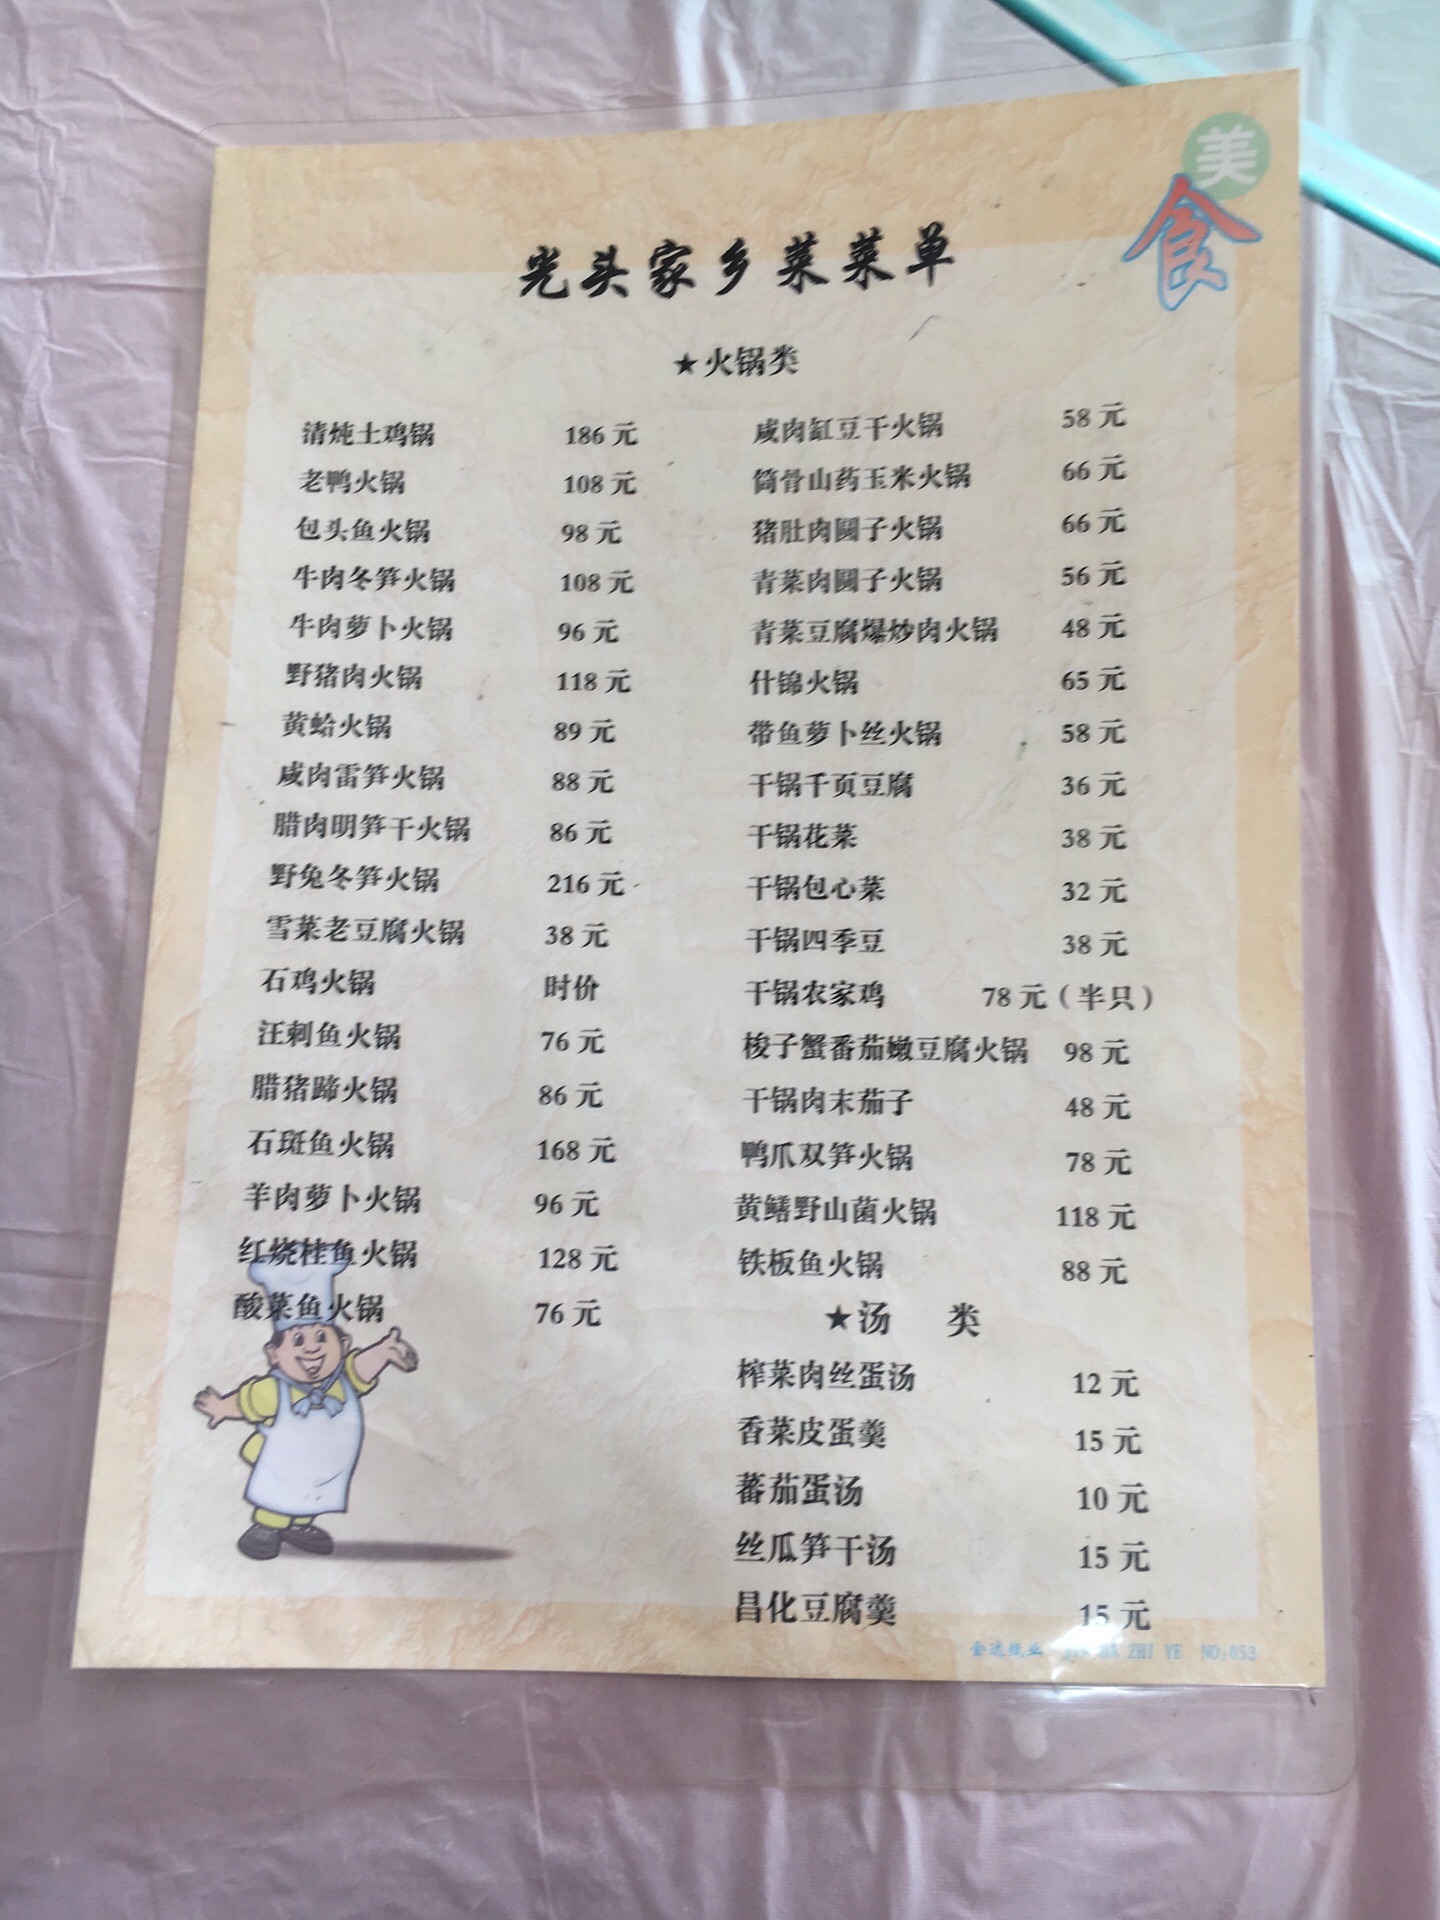 美
食
光头家乡菜菜单
★火锅类
清炖土鸡锅 186元
老鸭火锅 108元
包头鱼火锅 98元
牛肉冬笋火锅 108元
牛肉萝卜火锅 96元
野猪肉火锅 118元
黄蛤火锅 89元
咸肉雷笋火锅 88元
腊肉明笋干火锅 86元
野兔冬笋火锅 216元
雪菜老豆腐火锅 38元
石鸡火锅 时价
汪刺鱼火锅 76元
腊猪蹄火锅 86元
石斑鱼火锅 168元
羊肉萝卜火锅 96元
红烧桂鱼火锅 128元
酸菜鱼火锅 76元
咸肉缸豆干火锅 58元
筒骨山药玉米火锅 66元
猪肚肉圆子火锅 66元
青菜肉圆子火锅 56元
青菜豆腐爆炒肉火锅 48元
什锦火锅 65元
带鱼萝卜丝火锅 58元
干锅千页豆腐 36元
干锅花菜 38元
干锅包心菜 32元
干锅四季豆 38元
干锅农家鸡 78元（半只）
梭子蟹番茄嫩豆腐火锅 98元
干锅肉末茄子 48元
鸭爪双笋火锅 78元
黄鳝野山菌火锅 118元
铁板鱼火锅 88元
★汤 类
榨菜肉丝蛋汤 12元
香菜皮蛋羹 15元
蕃茄蛋汤 10元
丝瓜笋干汤 15元
昌化豆腐羹 15元
ZHI YE NO:053